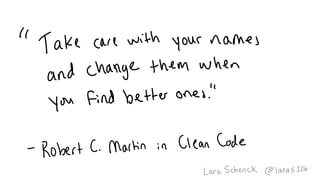 "Take care with your names
and change them when
you find better ones."
- Robert C. Martin in Clean Code
Lara Schenck @laras126